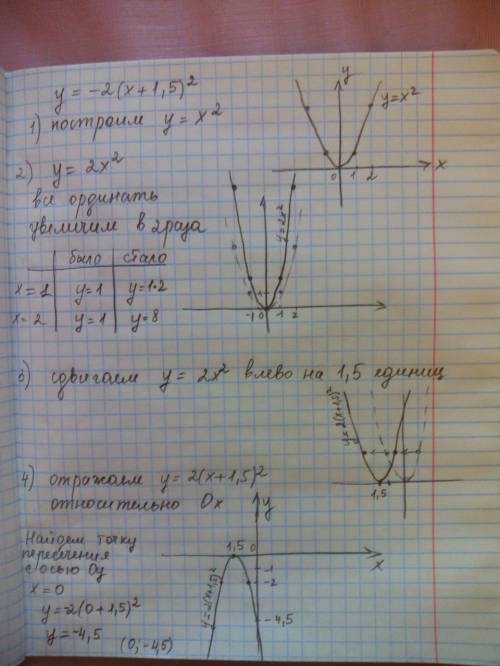 y = -2(x+1,5)²
1) построим y = x²
y
y=x²
0 1 2 x
2) y = 2x²
все ординаты
увеличим в 2раза
было стало
x=1 y=1 y=1·2
x=2 y=1 y=8
y=2x²
-1 0 1 2
3) сдвигаем y = 2x² влево на 1,5 единиц
y=2(x+1,5)²
1,5
4) отражаем y = 2(x+1,5)²
относительно Ox
y
1,5 0
x
-1
-2
-4,5
y=-2(x+1,5)²
Найдем точку
пересечения
с осью Oy
x = 0
y=-2(0+1,5)²
y=-4,5 (0;-4,5)